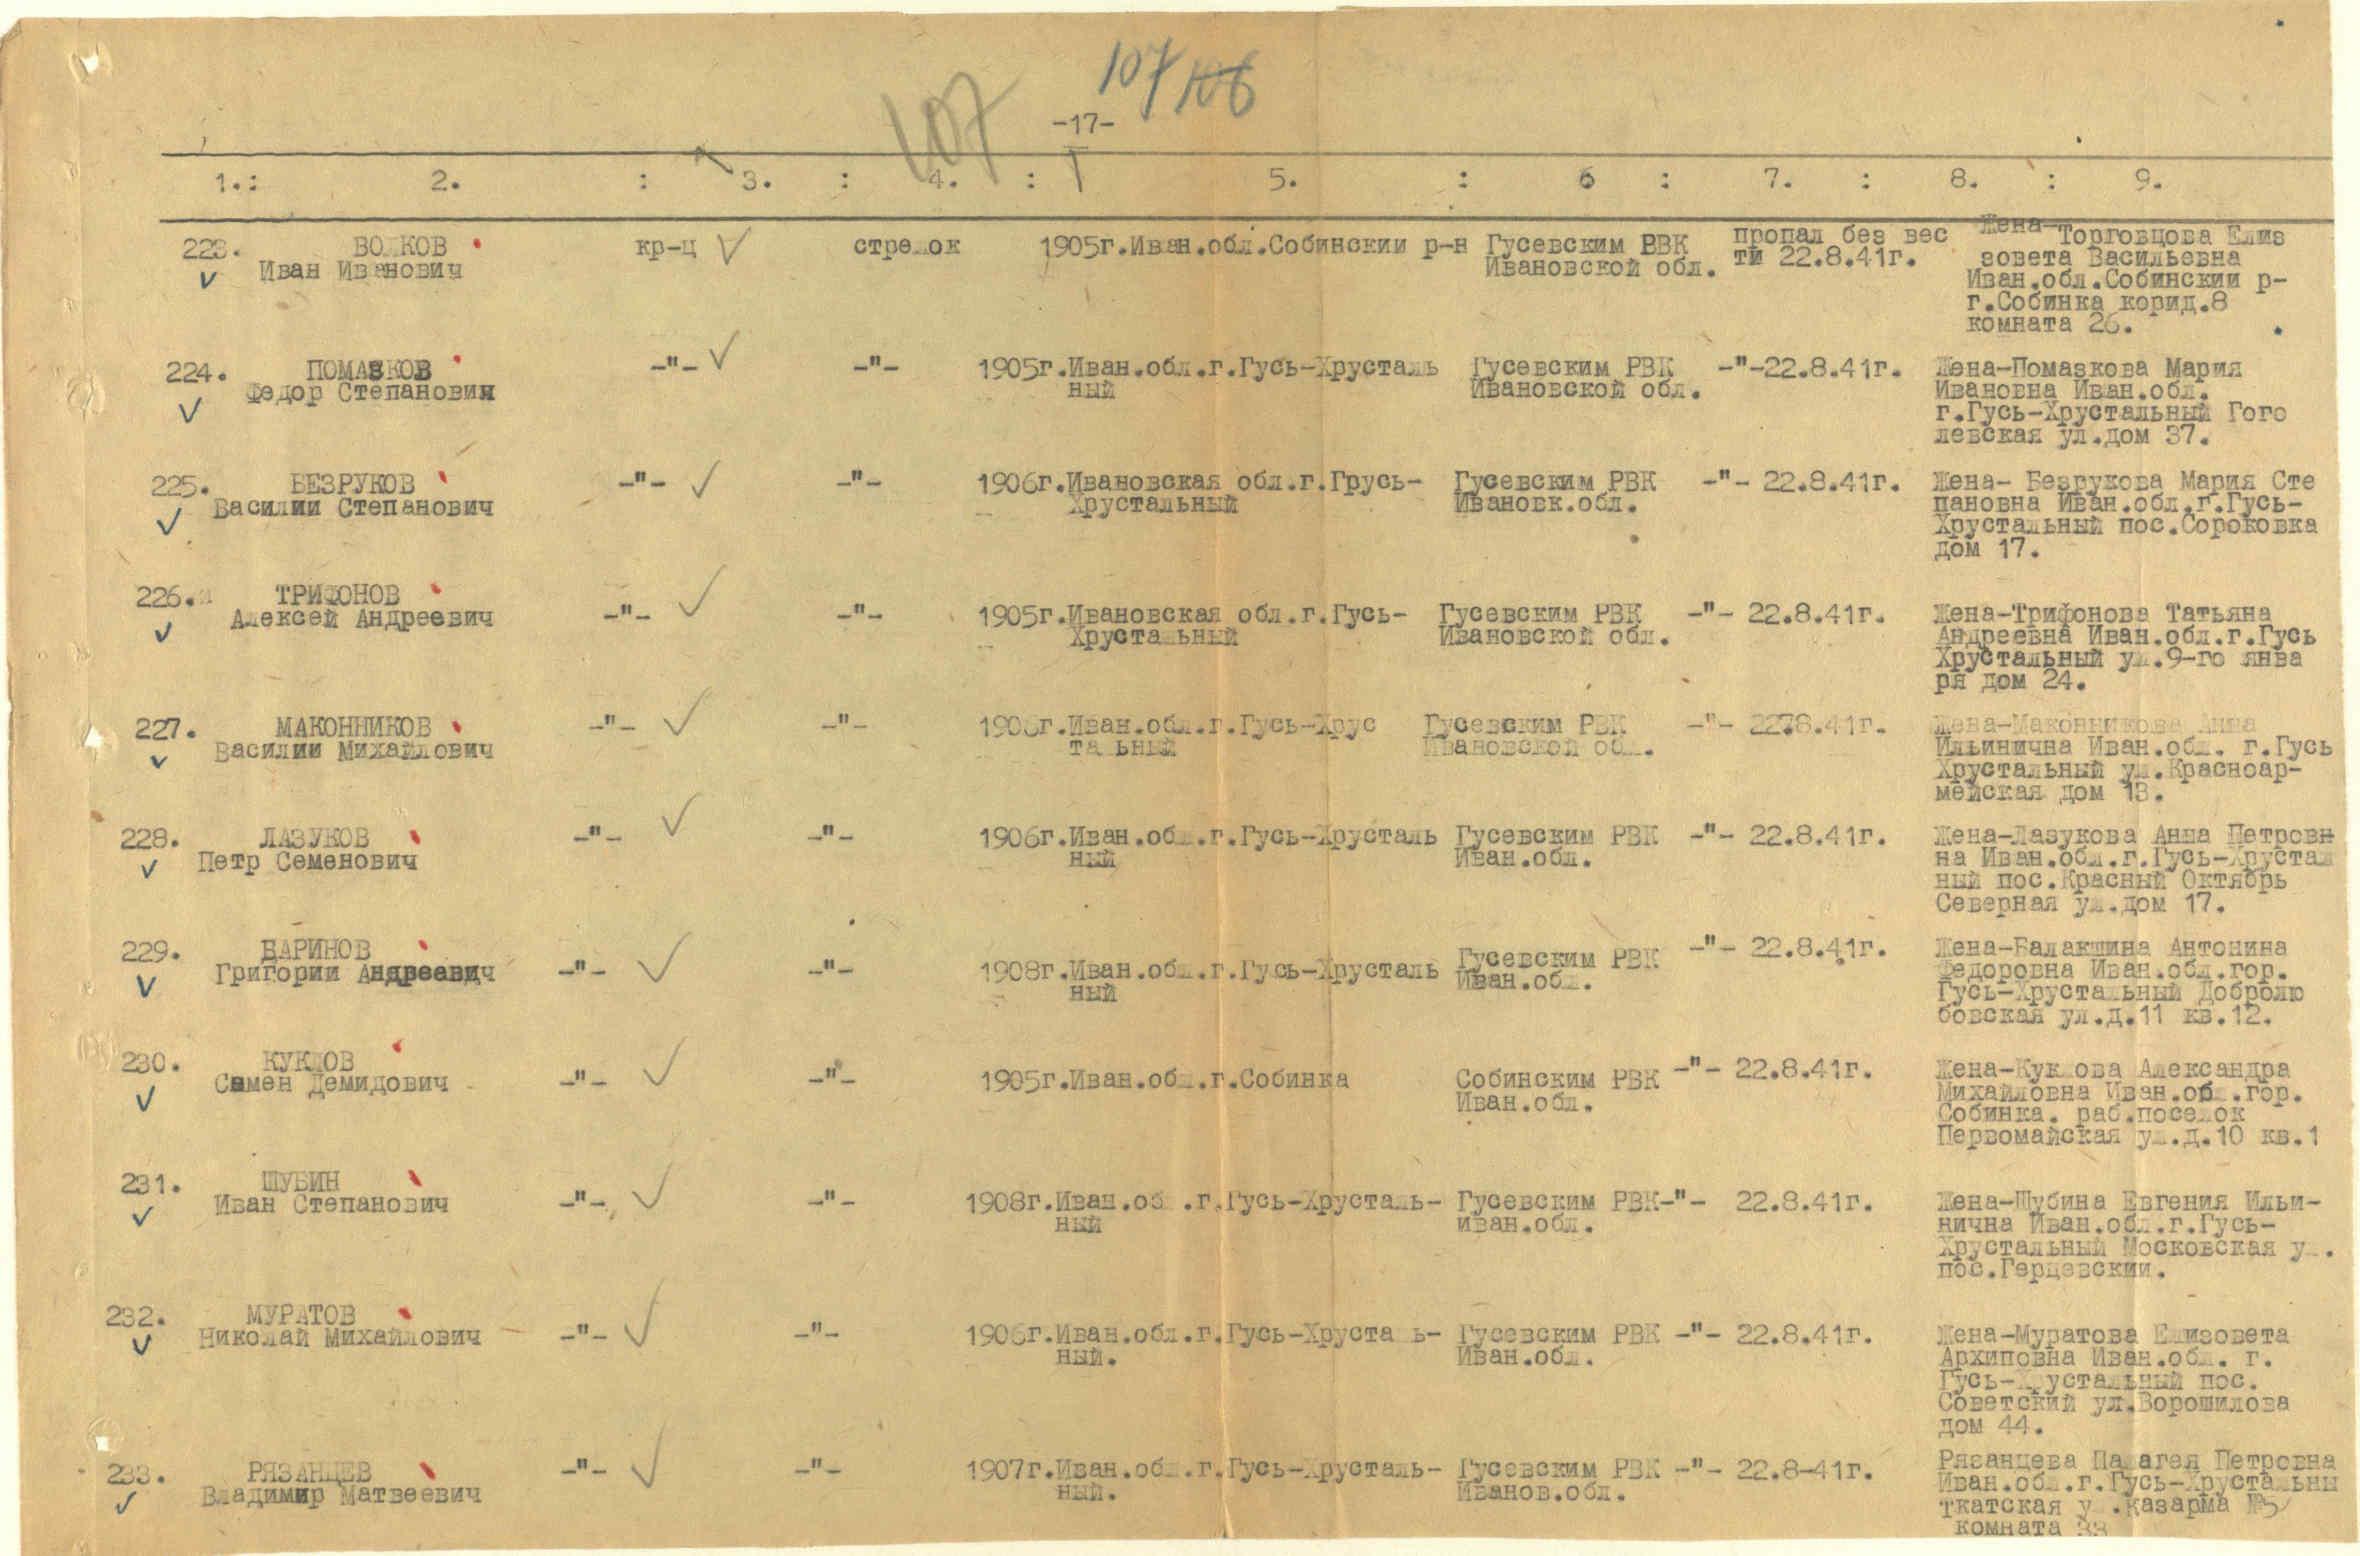 107 106
107
-17-
1.: 2. : 3. : 4. : 5. : 6 : 7. : 8. : 9.
223. ВОЛКОВ кр-ц стрелок 1905г.Иван.обл.Собинскии р-н Гусевским ВВК пропал без вес Жена-Торговцова Елиз
Иван Иванович Ивановской обл. ти 22.8.41г. зовета Васильевна
Иван.обл.Собинскии р-
г.Собинка корид.8
комната 26.
224. ПОМАЗКОВ -"- -"- 1905г.Иван.обл.г.Гусь-Хрусталь Гусевским РВК -"-22.8.41г. Жена-Помазкова Мария
Федор Степанович ный Ивановской обл. Ивановна Иван.обл.
г.Гусь-Хрустальный Гого
левская ул.дом 37.
225. БЕЗРУКОВ -"- -"- 1906г.Ивановская обл.г.Грусь- Гусевским РВК -"- 22.8.41г. Жена- Безрукова Мария Сте
Василии Степанович Хрустальный Ивановк.обл. пановна Иван.обл.г.Гусь-
Хрустальный пос.Сороковка
дом 17.
226. ТРИФОНОВ -"- -"- 1905г.Ивановская обл.г.Гусь- Гусевским РВК -"- 22.8.41г. Жена-Трифонова Татьяна
Алексей Андреевич Хрустальный Ивановской обл. Андреевна Иван.обл.г.Гусь
Хрустальный ул.9-го янва
ря дом 24.
227. МАКОННИКОВ -"- -"- 1906г.Иван.обл.г.Гусь-Хрус Гусевским РВК -"- 22.8.41г. Жена-Маконникова Анна
Василии Михайлович тальный Ивановской обл. Ильинична Иван.обл. г.Гусь
Хрустальный ул.Красноар-
мейская дом 13.
228. ЛАЗУКОВ -"- -"- 1906г.Иван.обл.г.Гусь-Хрусталь Гусевским РВК -"- 22.8.41г. Жена-Лазукова Анна Петровн
Петр Семенович ный Иван.обл. на Иван.обл.г.Гусь-Хрустал
ный пос.Красный Октябрь
Северная ул.дом 17.
229. БАРИНОВ -"- -"- 1908г.Иван.обл.г.Гусь-Хрусталь Гусевским РВК -"- 22.8.41г. Жена-Балакшина Антонина
Григории Андреевич ный Иван.обл. Федоровна Иван.обл.гор.
Гусь-Хрустальный Добролю
бовская ул.д.11 кв.12.
230. КУКЛОВ -"- -"- 1905г.Иван.обл.г.Собинка Собинским РВК -"- 22.8.41г. Жена-Куклова Александра
Семен Демидович Иван.обл. Михайловна Иван.обл.гор.
Собинка. раб.поселок
Первомайская ул.д.10 кв.1
231. ШУБИН -"- -"- 1908г.Иван.обл.г.Гусь-Хрусталь- Гусевским РВК-"- 22.8.41г. Жена-Шубина Евгения Ильи-
Иван Степанович ный иван.обл. нична Иван.обл.г.Гусь-
Хрустальный Московская ул.
пос.Герцевскии.
232. МУРАТОВ -"- -"- 1906г.Иван.обл.г.Гусь-Хрусталь- Гусевским РВК -"- 22.8.41г. Жена-Муратова Елизовета
Николай Михайлович ный. Иван.обл. Архиповна Иван.обл. г.
Гусь-Хрустальный пос.
Советский ул.Ворошилова
дом 44.
233. РЯЗАНЦЕВ -"- -"- 1907г.Иван.обл.г.Гусь-Хрусталь- Гусевским РВК -"- 22.8-41г. Рязанцева Палагея Петровна
Владимир Матвеевич ный. Иванов.обл. Иван.обл.г.Гусь-Хрустальны
ткатская ул.казарма №5
комната 33